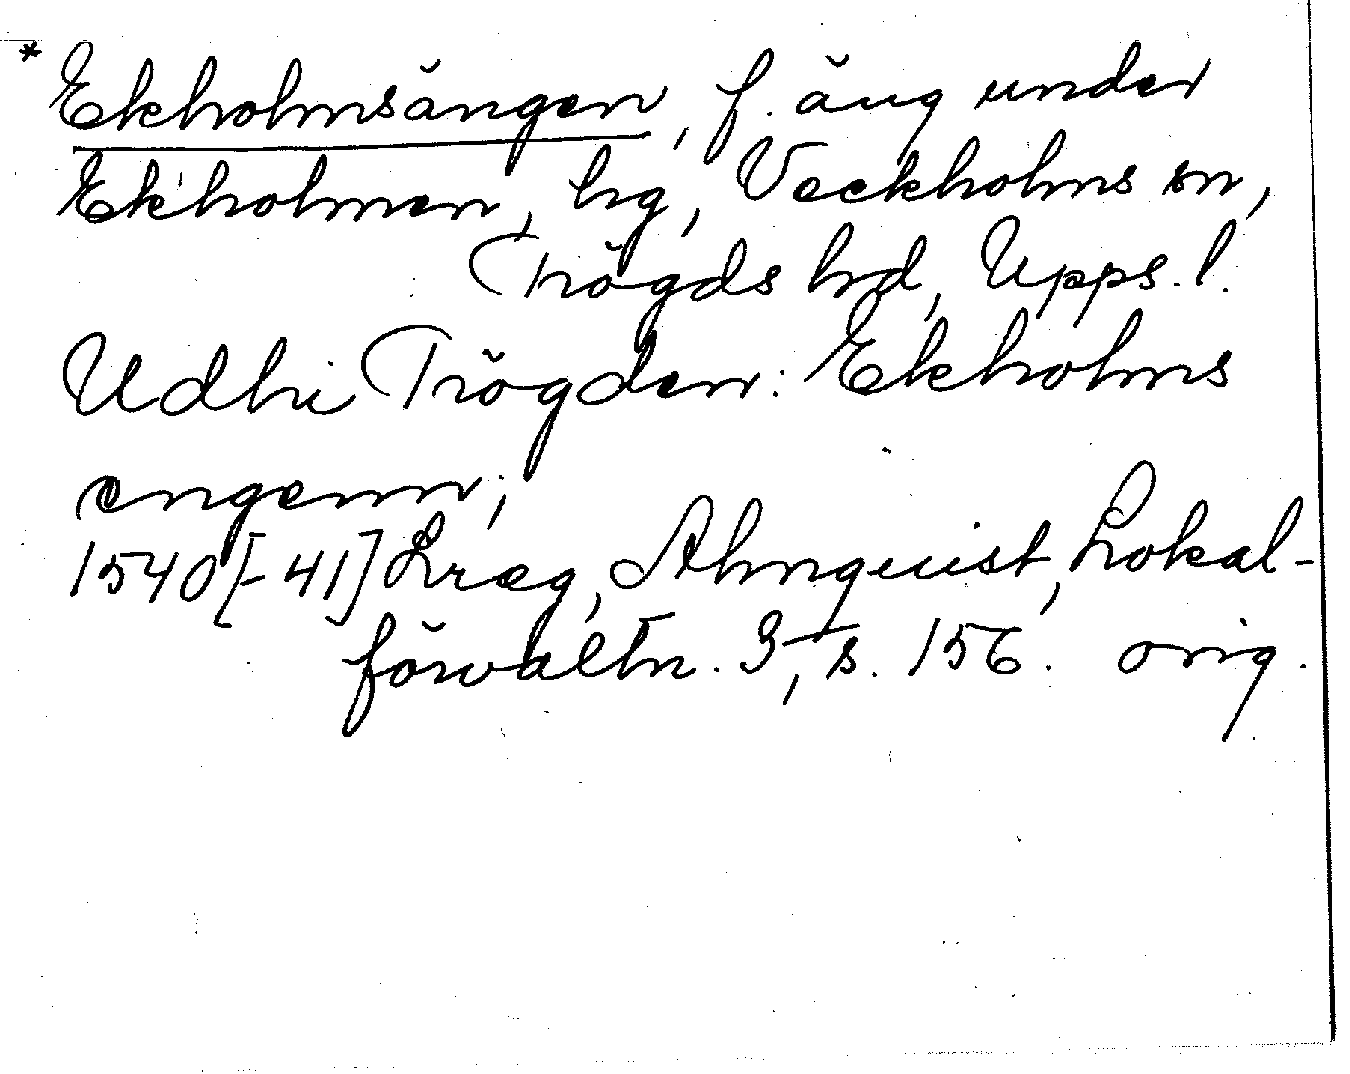 * Ekholmsängen, f. äng under
Ekholmen, hg, Veckholms sn,
Trögds hd, Upps. l.
Udhi Trögden: Ekholms
engenn;
1540[-41] Lräg, Almquist, Lokal-
förvaltn. 3, s. 156. orig.